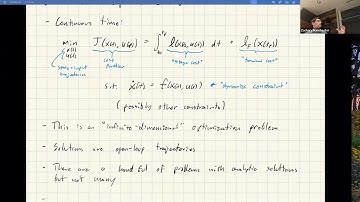 - Continuous time:
min J(x(t), u(t)) = ∫ l(x(t), u(t)) dt + l_F(x(t_f))
x(t)
u(t)
state + input trajectories
cost function
"stage cost"
"terminal cost"
s.t. ẋ(t) = f(x(t), u(t)) ← "dynamics constraint"
(possibly other constraints)
- This is an "infinite-dimensional" optimization problem
- Solutions are open-loop trajectories
- There are a handful of problems with analytic solutions
but not many